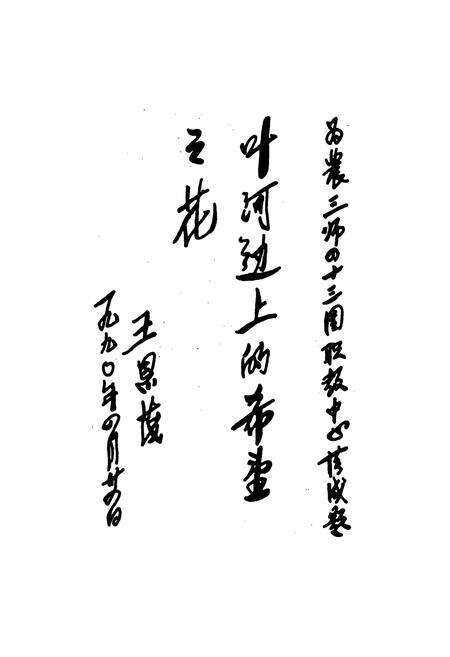 为農三师四十三团职教中心落成题
叶河边上的希望
之花
王恩茂
一九九〇年四月廿四日